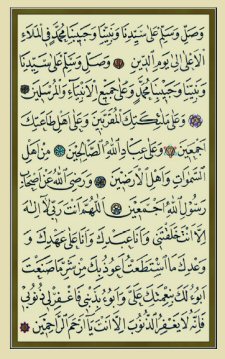 وَصَلِّ وَسَلِّمْ عَلٰى سَيِّدِنَا وَنَبِيِّنَا وَحَبِيبِنَا مُحَمَّدٍ فِي الْمَلَاءِ
الْاَعْلٰى اِلٰى يَوْمِ الدِّينِ وَصَلِّ وَسَلِّمْ عَلٰى سَيِّدِنَا
وَنَبِيِّنَا وَحَبِيبِنَا مُحَمَّدٍ وَعَلٰى جَمِيعِ الْاَنْبِيَاءِ وَالْمُرْسَلِينَ
وَعَلٰى مَلٰئِكَتِكَ الْمُقَرَّبِينَ وَعَلٰى اَهْلِ طَاعَتِكَ
اَجْمَعِينَ وَعَلٰى عِبَادِ اللّٰهِ الصَّالِحِينَ مِنْ اَهْلِ
السَّمٰوَاتِ وَاَهْلِ الْاَرَضِينَ وَرَضِيَ اللّٰهُ عَنْ اَصْحَابِ
رَسُولِ اللّٰهِ اَجْمَعِينَ اَللّٰهُمَّ اَنْتَ رَبِّي لَا اِلٰهَ
اِلَّا اَنْتَ خَلَقْتَنِي وَاَنَا عَبْدُكَ وَاَنَا عَلٰى عَهْدِكَ وَ
وَعْدِكَ مَا اسْتَطَعْتُ اَعُوذُ بِكَ مِنْ شَرِّ مَا صَنَعْتُ
اَبُوءُ لَكَ بِنِعْمَتِكَ عَلَيَّ وَاَبُوءُ بِذَنْبِي فَاغْفِرْ لِي ذُنُوبِي
فَاِنَّهُ لَا يَغْفِرُ الذُّنُوبَ اِلَّا اَنْتَ يَا اَرْحَمَ الرَّاحِمِينَ